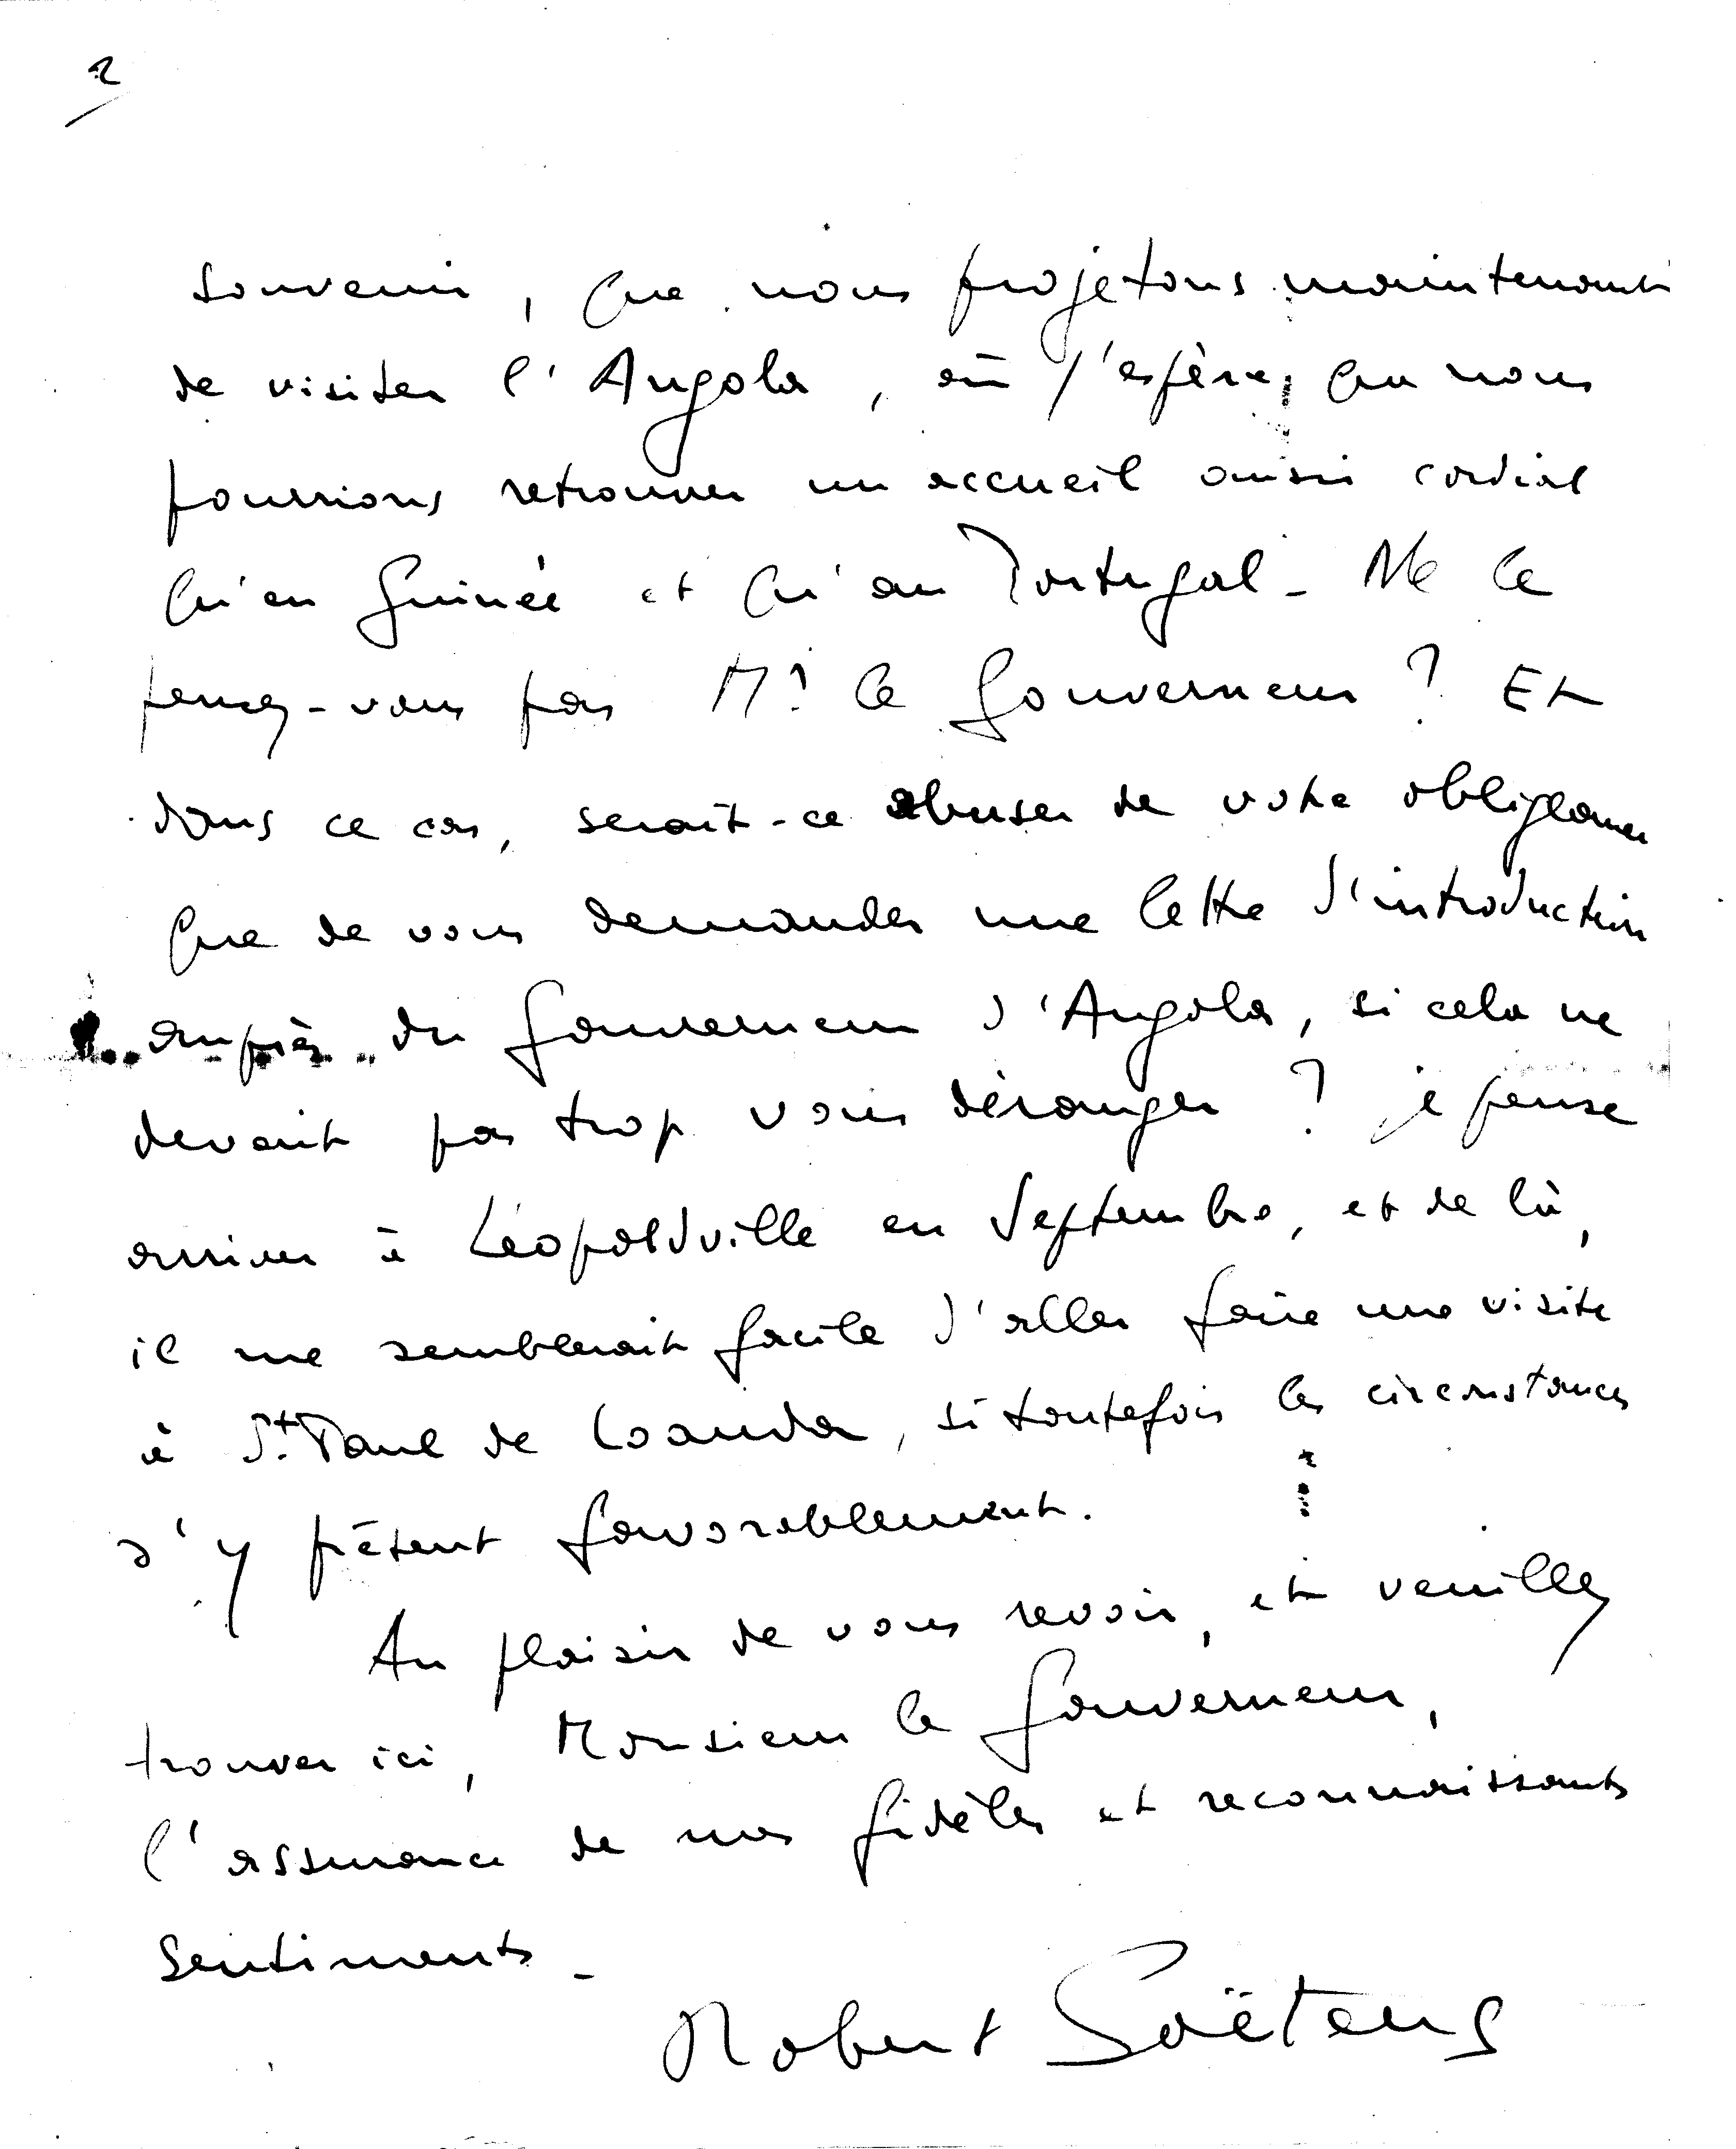 2
souvenir, que nous projetons maintenant
de visiter l'Angola, où j'espère, que nous
pourrions retrouver un accueil aussi cordial
qu'en Guinée et qu'au Portugal - Ne le
pensez-vous pas Mr le Gouverneur ? Et
dans ce cas, serait-ce abuser de votre obligeance
que de vous demander une lettre d'introduction
auprès du Gouverneur d'Angola, si cela ne
devait pas trop vous déranger ? je pense
arriver à Léopoldville en Septembre, et de là,
il me semblerait facile d'aller faire une visite
à St. Paul de Loanda, si toutefois les circonstances
s'y prêtent favorablement.
Au plaisir de vous revoir, et veuillez
trouver ici, Monsieur le Gouverneur,
l'assurance de mes fidèles et reconnaissants
sentiments -
Robert Soëtens